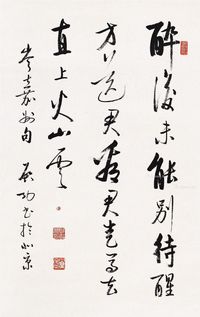 醉後未能別待醒
方送君看君走馬去
直上火山雲
岑嘉州句 启功書於北京